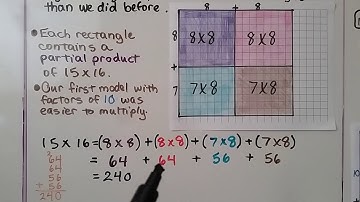 than we did before.
8 + 8
• Each rectangle
contains a
partial product
of 15 x 16.
• Our first model with
factors of 10 was
easier to multiply.
8
+
7
8 x 8
8 x 8
7 x 8
7 x 8
15 x 16 = (8 x 8) + (8 x 8) + (7 x 8) + (7 x 8)
= 64 + 64 + 56 + 56
= 240
2
64
64
56
+ 56
240